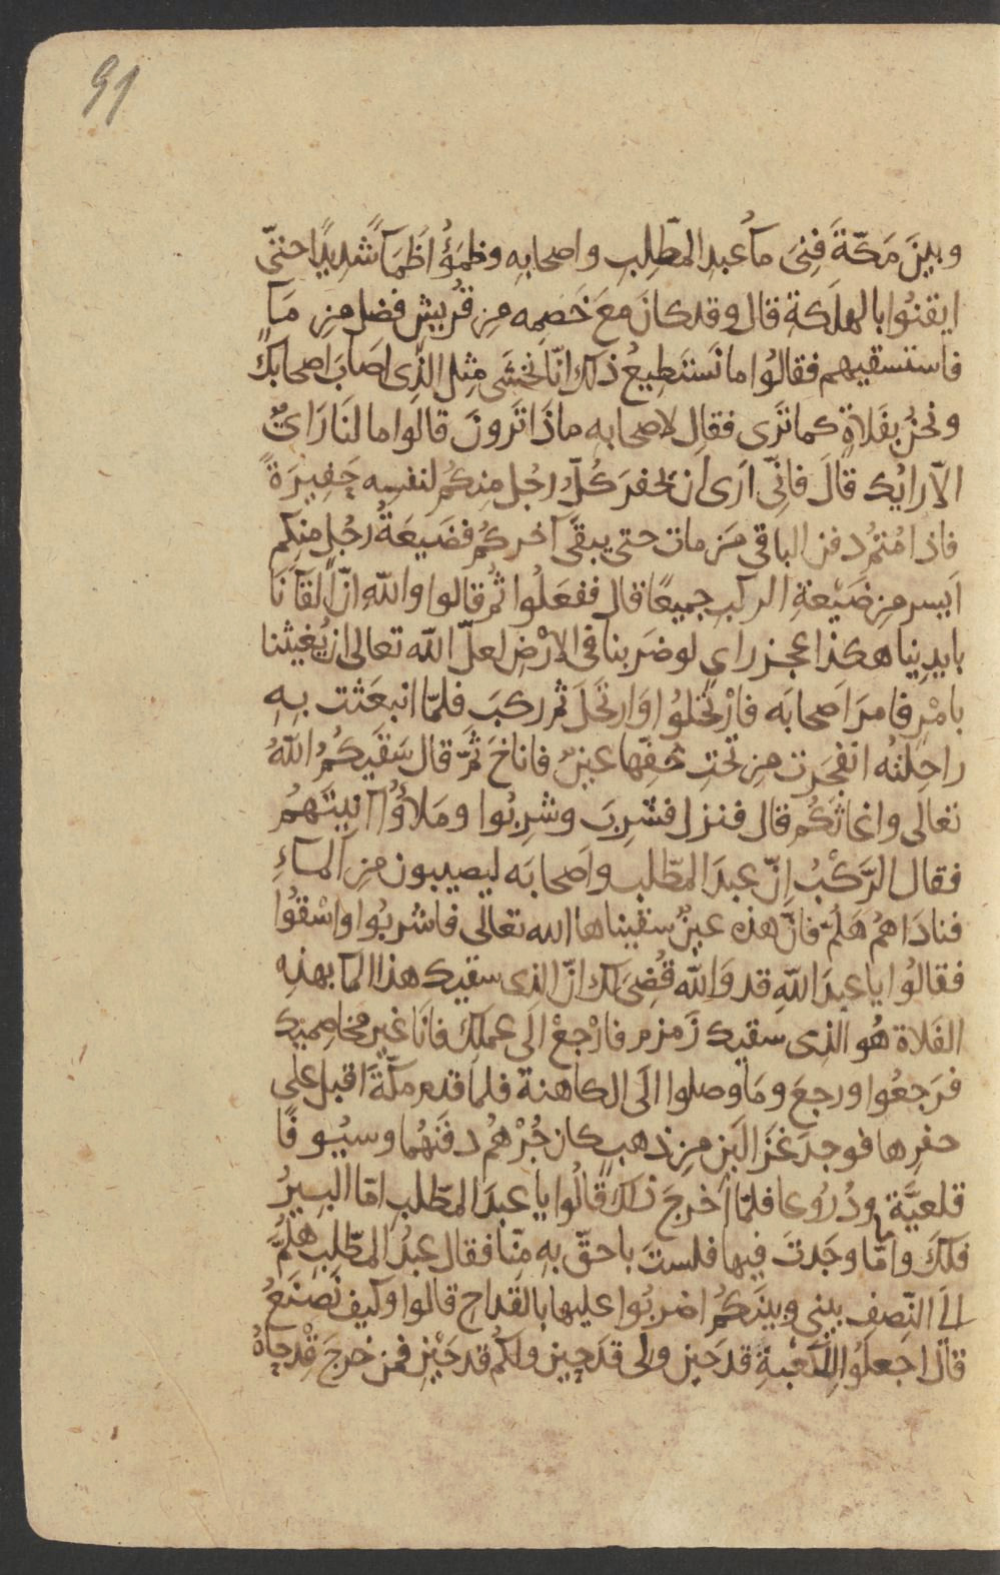 91
وبينَ مَكّةَ فَنِىَ مآءُ عبدِ المطّلِبِ واصحابِهِ وظمَؤُا ظَمَآً شدِيدًا حتىّ
ايقنُوا بالهلَكةِ قال وقد كانَ معَ خَصمِه مِن قُريشٍ فضل مِن مَآءٍ
فاستسقيهم فقالُوا ما نَستَطِيعُ ذلك انّا نخشَى مِثل الذِى اصَابَ اصحابكَ
ونحنُ بفَلاةٍ كما تَرَى فقال لاصحابه ماذَا تَرَونَ قالُوا ما لنَا رَاىٌ
الاّ رايُك قالَ فانِّى اَرى ان يَحفرَ كُلُّ رجُلٍ مِنكُم لنفسِه حَفِيرَةً
فاذا مُتمُ دفن الباقى مَن مات حتى يبقَى آخركُم فضَيعَةُ رجُلٍ منكم
اَيسر مِن ضَيْعةِ الركبِ جميعًا قال ففعَلُوا ثُم قالوا والله انّ اِلقآنَا
بايدِينا هكذا عجز رايٍ لو ضرَبنا فى الارْضِ لعلّ الله تعالى ان يُغيثنا
بامْرٍ فامرَ اَصحابَه فارْتحَلُوا وَارتحَلَ ثم ركبَ فلمّا انبعَثت بِهِ
راحِلتُه انفجَرت مِن تحتِ خفِّها عينٌ فاناخَ ثمَّ قال سَقَيكُمُ اللّهُ
تعالَى واغاثَكُم قال فنزل فشرِبَ وشرِبُوا ومَلأُوُا آنِيتَهُم
فقال الرَّكْبُ اِنّ عبدَ المطّلب واَصحابَه ليصيبون مِن المآءِ
فنادَاهمُ هَلُمَّ فانّ هذه عينٌ سقيناها الله تعالَى فاشربُوا واسْقُوا
فقالُوا يا عبدَ اللّهِ قد وَاللّه قُضِىَ لك انّ الذى سقيك هذا المآ بهذِهِ
الفَلاة هُو الّذِى سقيك زَمزم فارْجعْ الَى عملِكَ فانَا غير مخاصِميك
فرَجعُوا ورجعَ ومَا وصلوا الَى الكاهنة فلما قدم مكّةَ اقبل على
حفرِها فوجدَ غزَالَينِ مِن ذهبٍ كان جُرْهُم دفَنَهُما وسيُوفًا
قلعيَّة ودُرُوعا فلمّا اَخرجَ ذلك قالُوا يا عبدَ المطّلبِ امّا البيرُ
فلكَ وامّا ما وجَدتَ فيها فلستَ باحقّ بهِ مِنّا فقال عبدُ المطّلِب هلُمَّ
اِلَى النّصِفِ بينِى وبينَكُم اضربُوا عليها بالقداح قالوا وكيف نَصنَعُ
قال اجعلُوا لِلكعبَةِ قدحَين ولِى قدَحين ولكُم قدحَيْنِ فمن خرجَ قِدْحاهُ